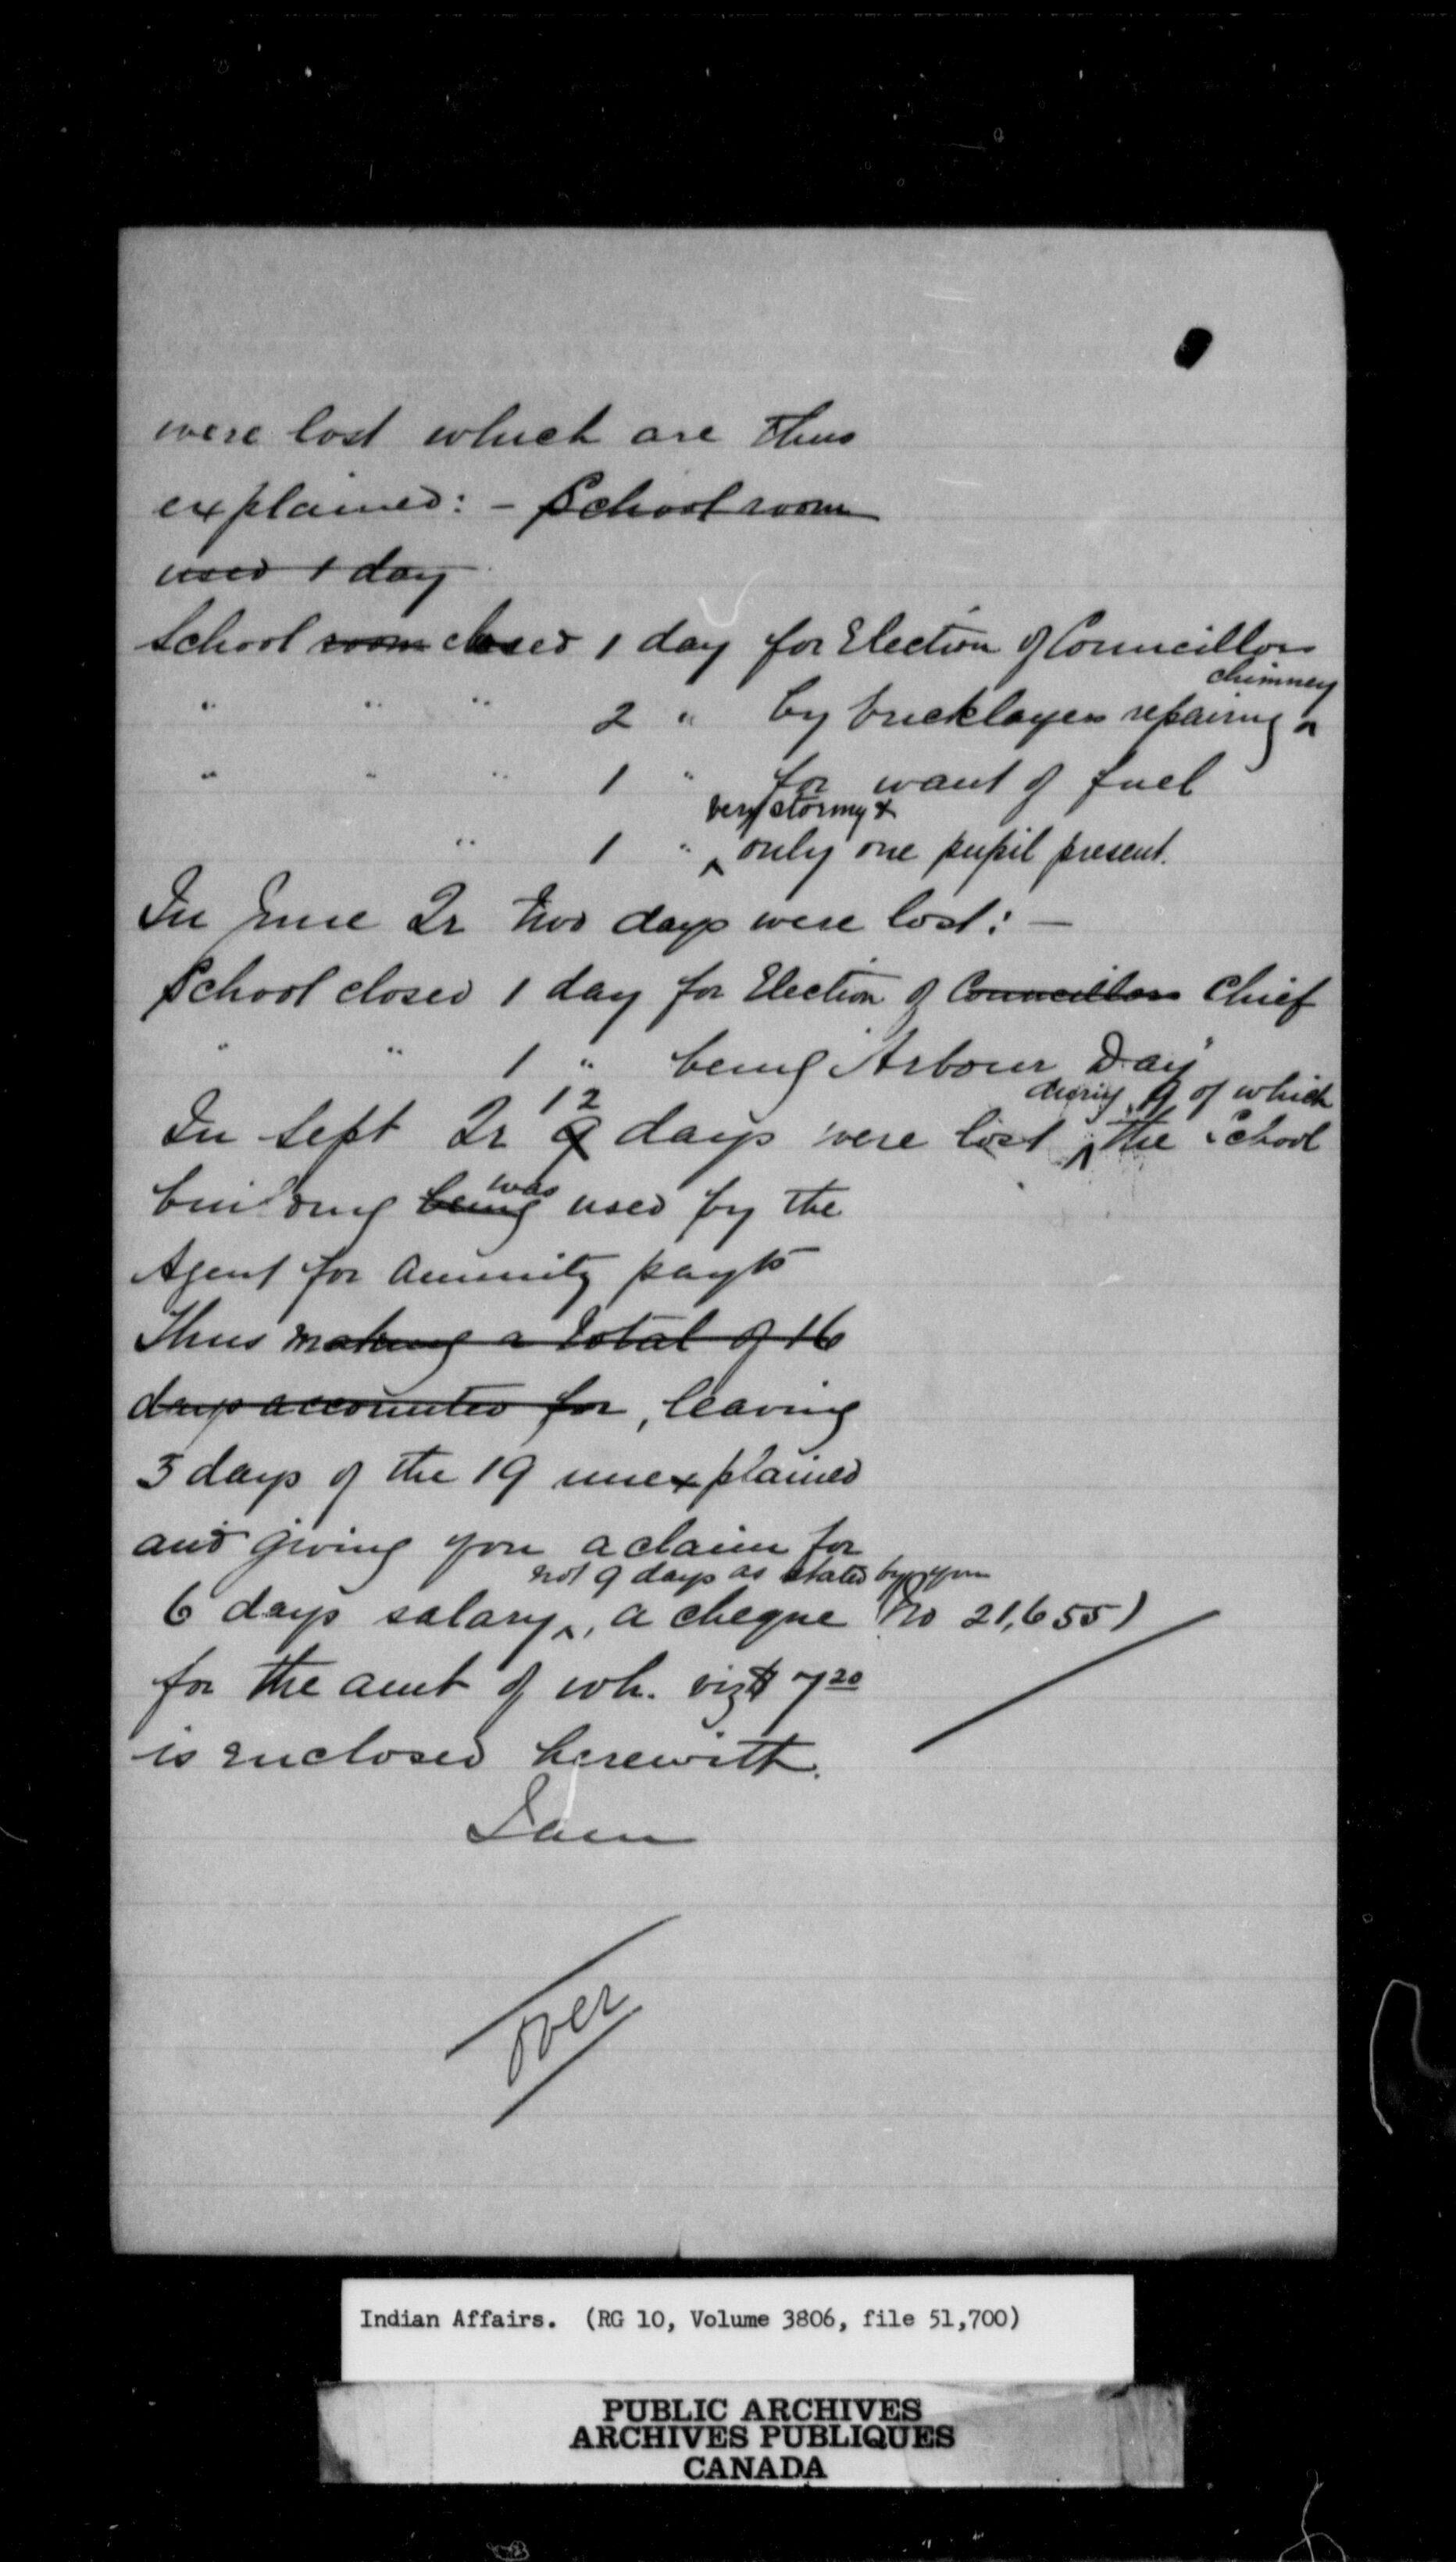 were lost which are thus
explained: - School room
used 1 day
School room closed 1 day for Election of Councillors
chimney
" " " 2 " by bricklayers repairing
" " " 1 " for want of fuel
very stormy &
" 1 " only one pupil present.
In June Qr two days were lost: -
School closed 1 day for Election of Councillors Chief
" " 1 " being "Arbour Day"
12 during 9 of which
In Sept Qr 9 days were lost the School
was
building being used by the
Agent for annuity payts
Thus making a total of 16
days accounted for, leaving
3 days of the 19 unexplained
and giving you a claim for
not 9 days as stated by you
6 days salary, a cheque (No 21,655)
for the amt of wh. viz $7 20
is enclosed herewith.
I am
over
Indian Affairs. (RG 10, Volume 3806, file 51,700)
PUBLIC ARCHIVES
ARCHIVES PUBLIQUES
CANADA